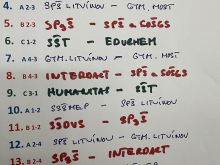 4. A 2-3 SPŠ LITVÍNOV - GYM. MOST
5. B 2-3 SP3Š - SPŠ a SOŠGS
6. C 1-2 SŠT EDUCHEM
7. A 4-3 GYM. LITVÍNOV - GYM. MOST
8. B 4-3 INTERDACT - SPŠ a SOŠGS
9. C 3-1 HUMANITAS - SŠT
10. A 1-2 SŠMEP - SPŠ LITVÍNOV
11. B 1-2 SŠDUS - SP3Š
12. A 2-4 SPŠ LITVÍNOV - GYM. LITVÍNOV
13. B 2-4 SP3Š - INTERDACT